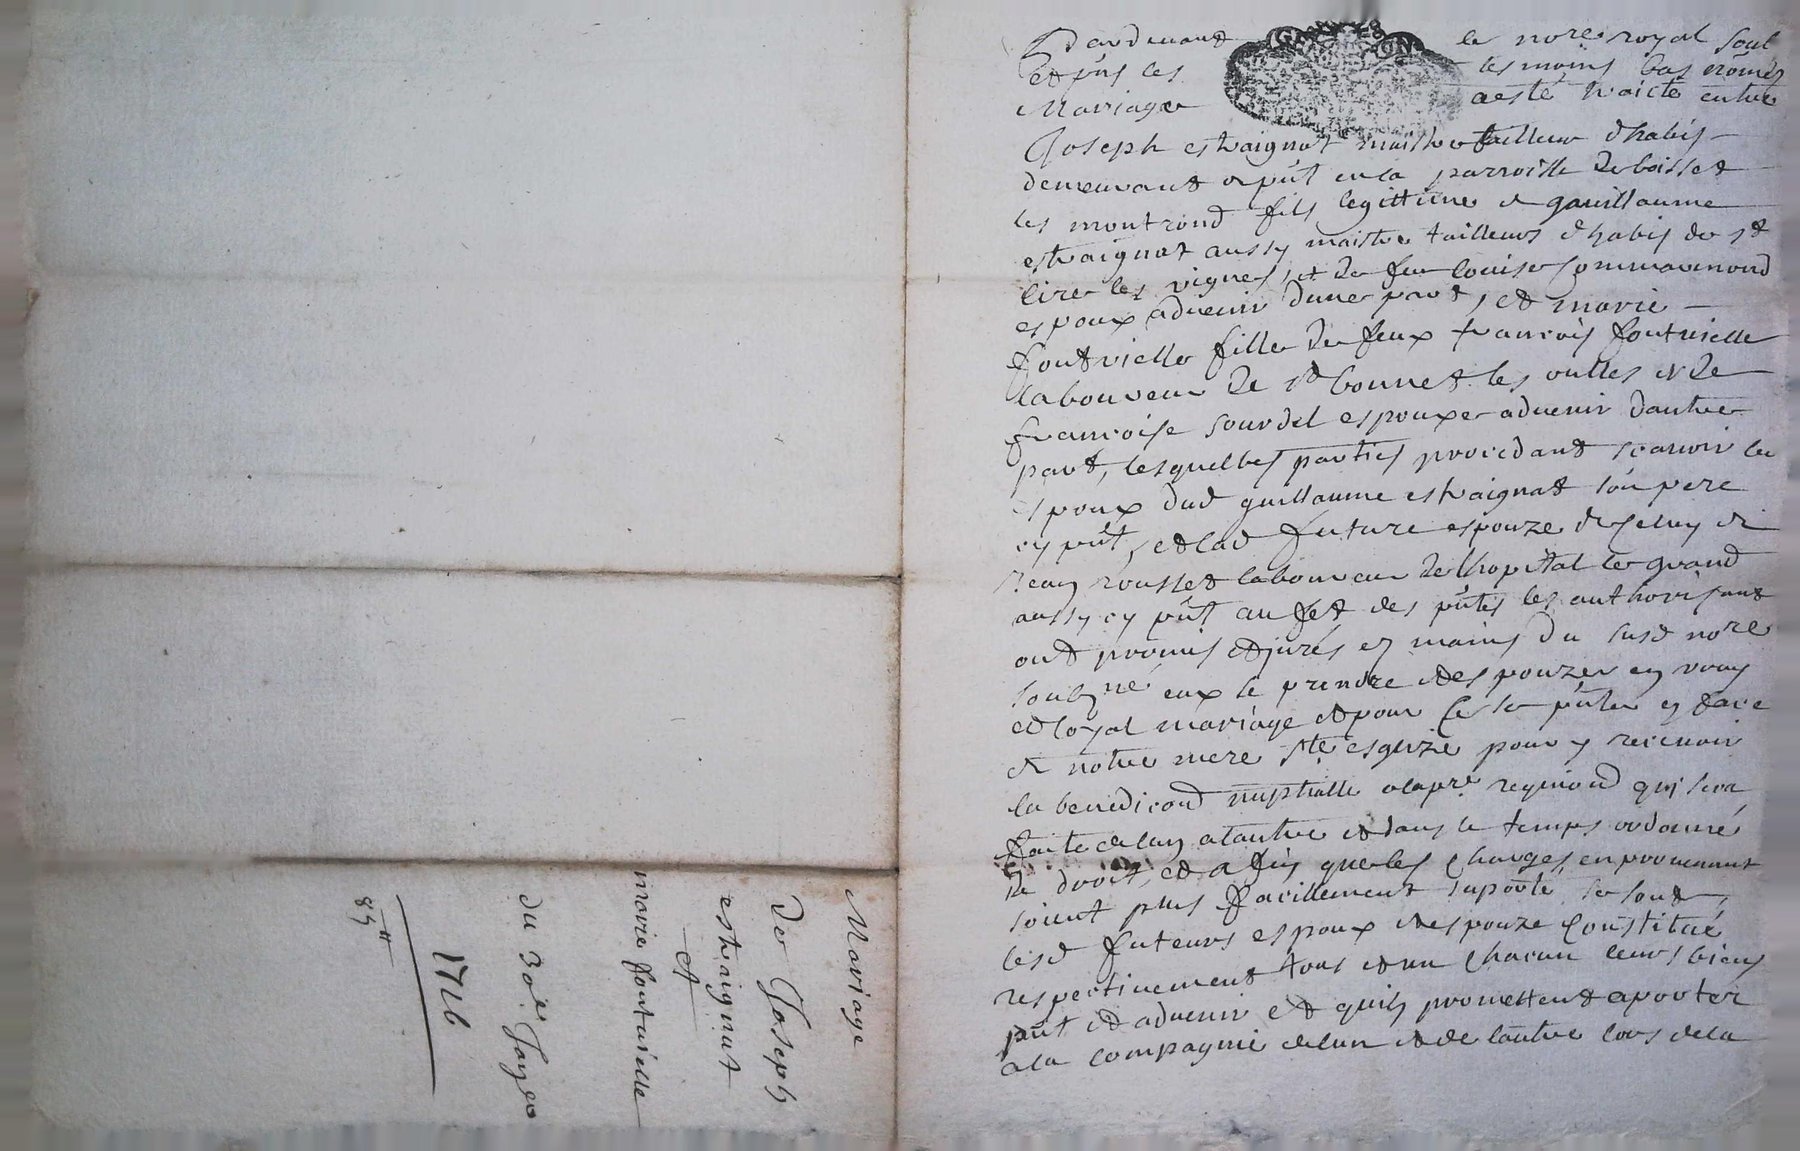 Pardevant le nore royal soub
et pñs les tesmoins bas nõmés
Mariage a esté traicté entre
Joseph estraignat maistre tailleur dhabis
demeurant a pñt en la parroisse de boisset
les montrond fils legittime de guillaume
estraignat aussy maistre tailleur dhabis de st
cire les vignes, et de feue louise sommarmond
espoux advenir dune part, et marie
fontvielle fille de feux francois fontvielle
laboureur de st bonnet les oulles et de
francoise sourdel espouze advenir dautre
part, lesquelles parties procedant scavoir le
espoux dud guillaume estraignat son pere
cy pñt, et lad future espouze de celuy de
jean rousset laboureur de lhopital le grand
aussy cy pñt au fet des pñtes les authorisant
ont promis et jurés es mains du susd nore
soubzne eux se prendre et espouzer en vray
et loyal mariage et pour ce se pñter en face
de notre mere ste esglize pour y recevoir
la benediõn nuptialle a la pre requiõn qui sera
faite de lun a lautre et dans le temps ordonné
de droit, et a fin que les charges en provenant
soient plus facillement suporté se sont
lesd futeurs espoux et espouze constitué
respectivement tous et un chacun leurs biens
pñt et advenir et quils promettent aporter
a la compagnie de lun et de lautre lors de la
Mariage
De Joseph
estraignat
et
marie fontvielle
du 30e Janver
1726
85